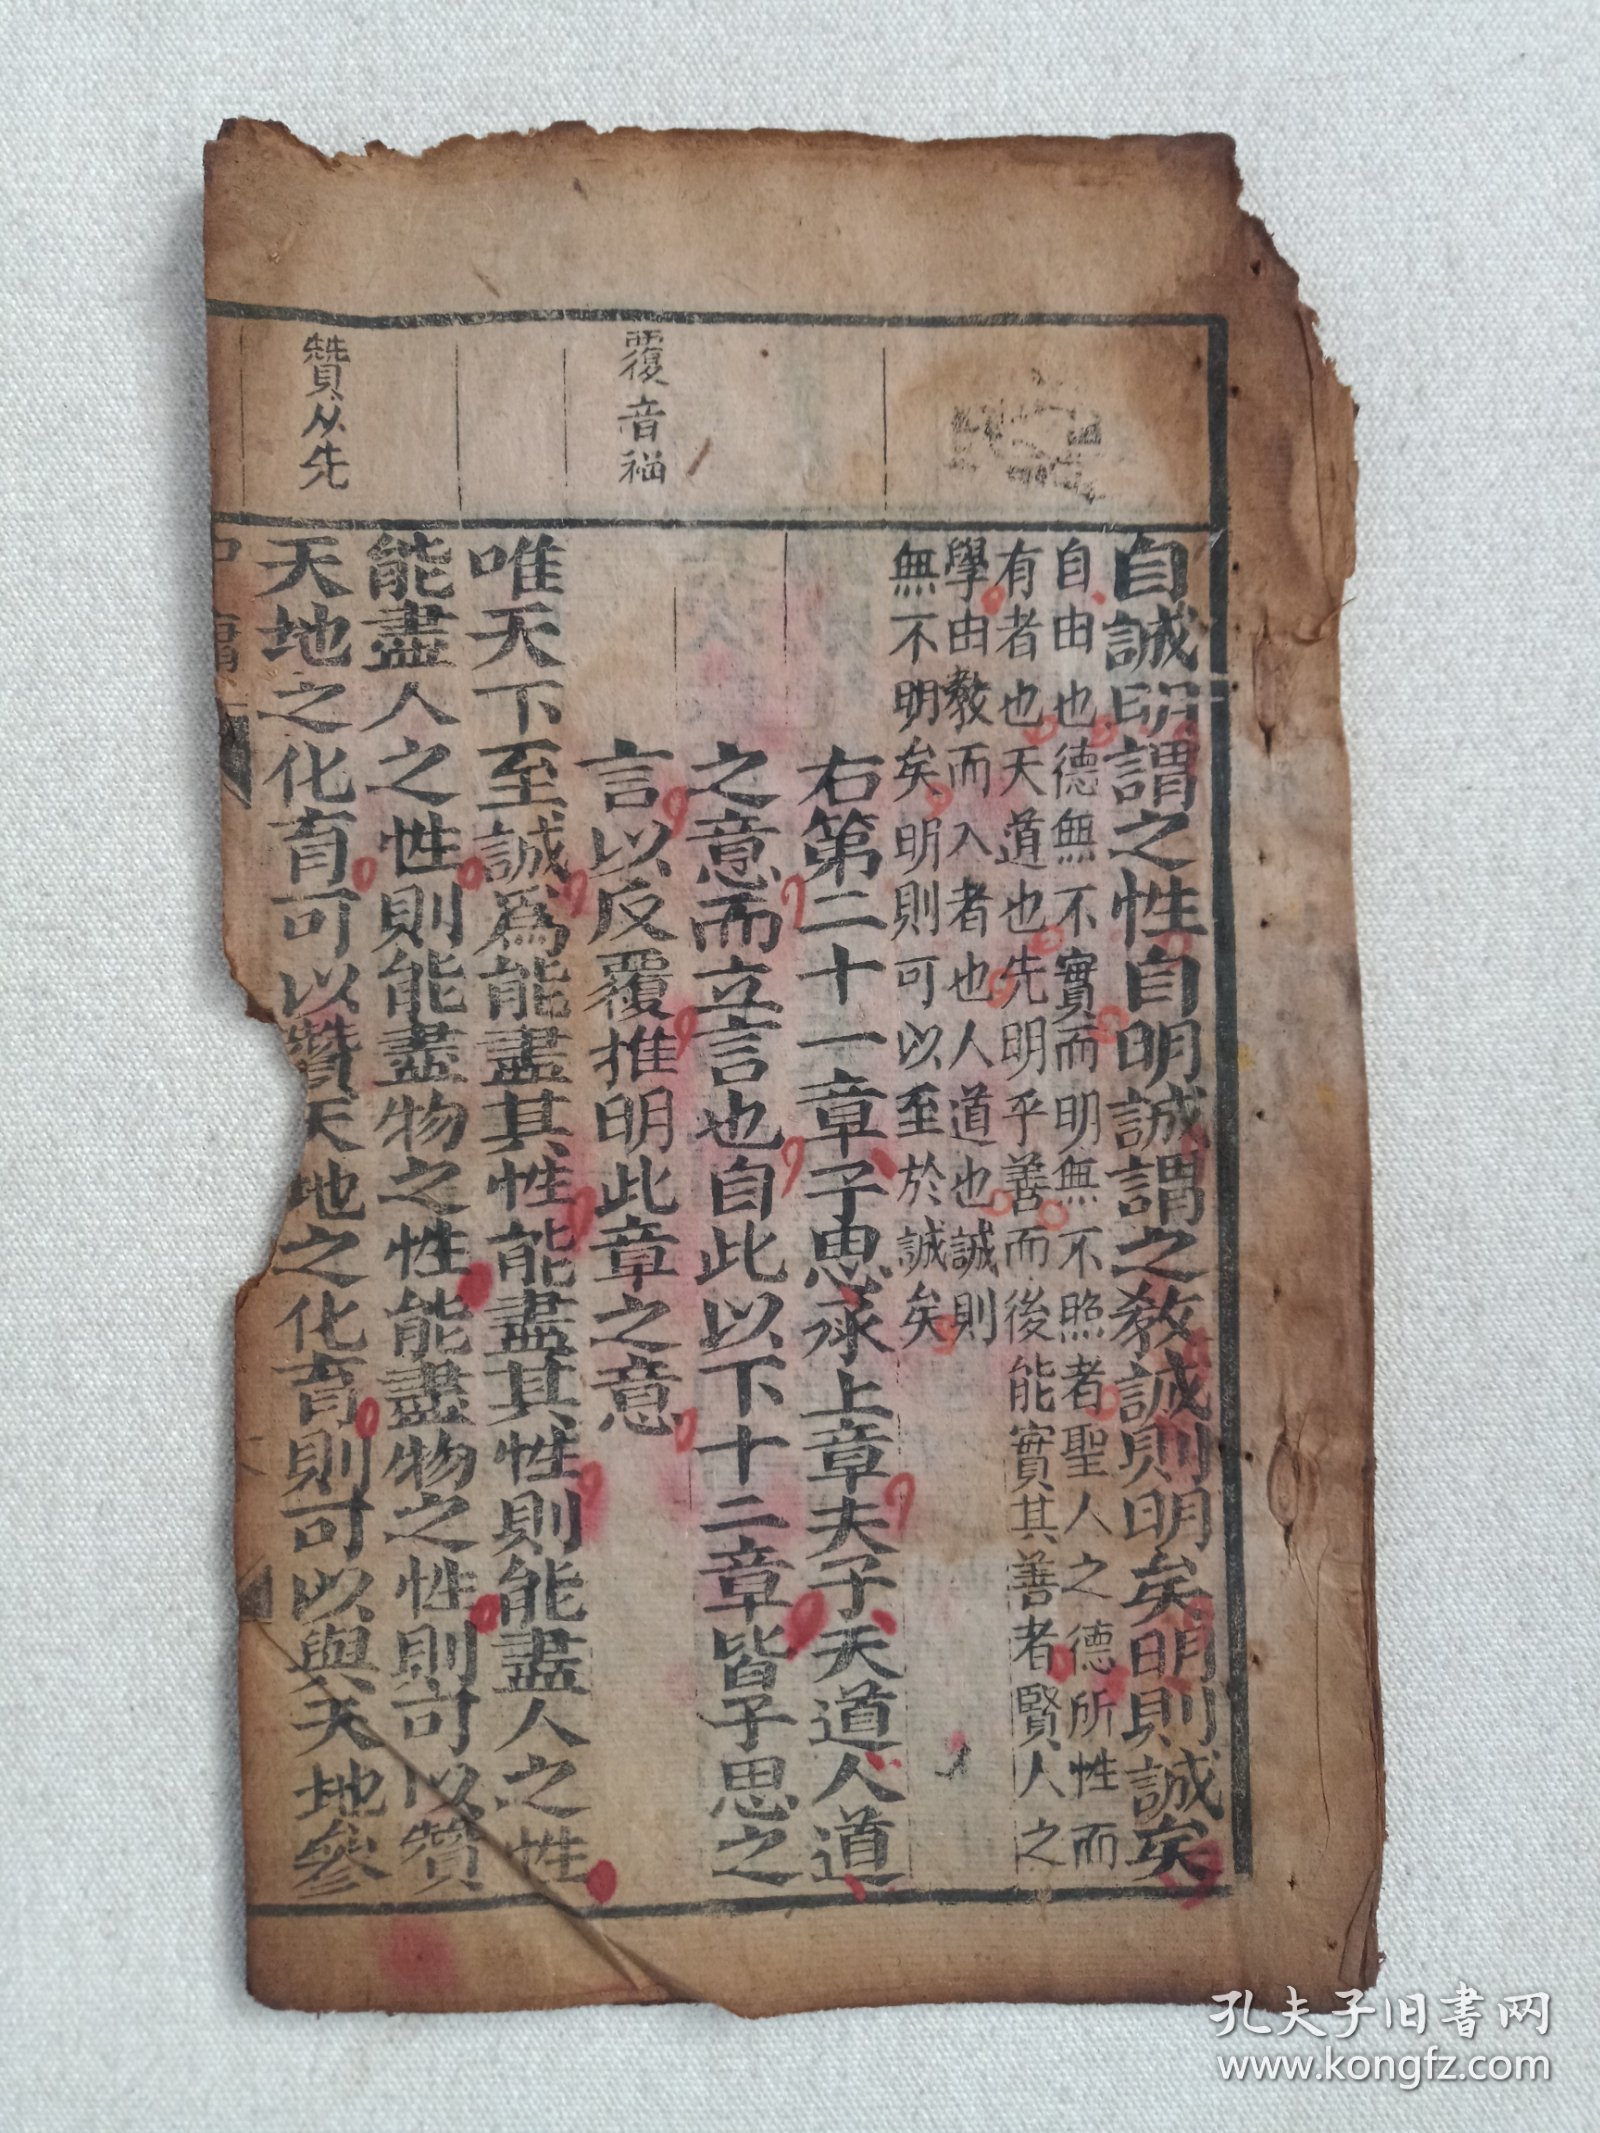 自誠明謂之性自明誠謂之敎誠則明矣明則誠矣
自由也德無不實而明無不照者聖人之德所性而
有者也天道也先明乎善而後能實其善者賢人之
學由敎而入者也人道也誠則
無不明矣明則可以至於誠矣
右第二十一章子思承上章夫子天道人道
之意而立言也自此以下十二章皆子思之
言以反覆推明此章之意
唯天下至誠爲能盡其性能盡其性則能盡人之性
能盡人之性則能盡物之性能盡物之性則可以贊
天地之化育可以贊天地之化育則可以與天地參
覆音福
贊从先
孔夫子旧書网
www.kongfz.com